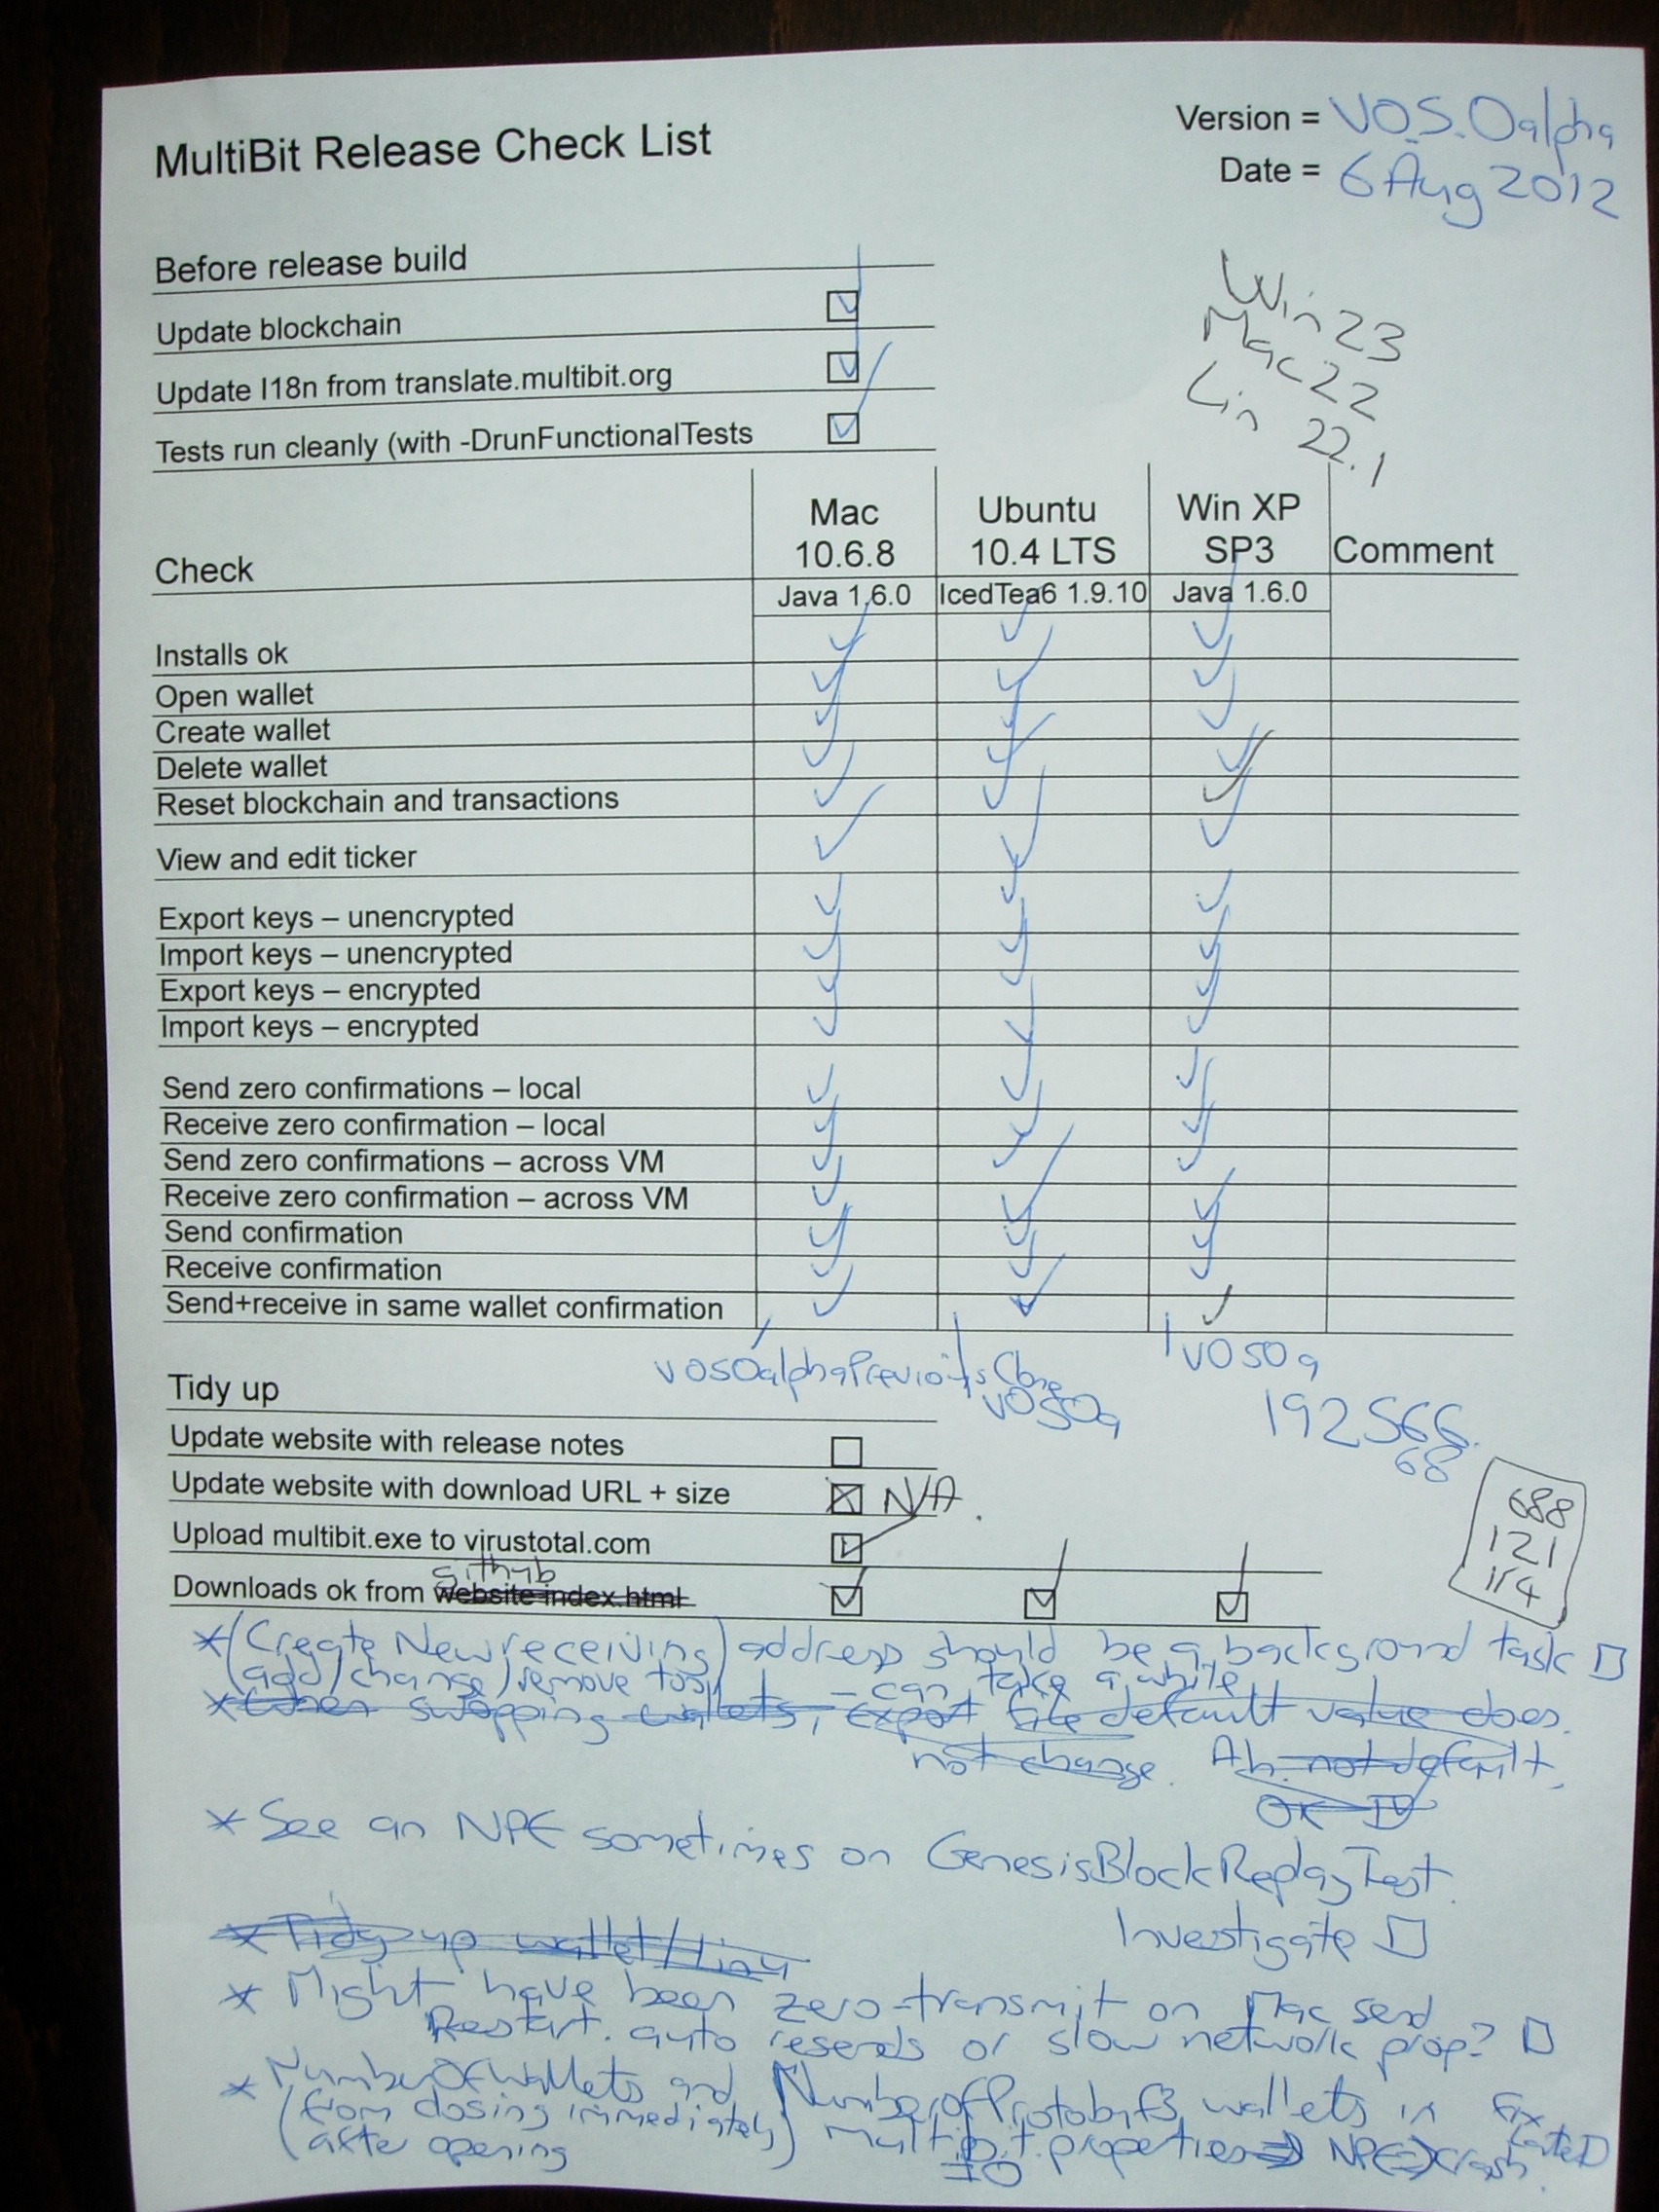 MultiBit Release Check List
Version = V0.5.0alpha
Date = 6 Aug 2012
Before release build
Update blockchain
Update I18n from translate.multibit.org
Tests run cleanly (with -DrunFunctionalTests
Win 23
Mac 22
Lin 22.1
Check
Mac 10.6.8
Ubuntu 10.4 LTS
Win XP SP3
Comment
Java 1.6.0
IcedTea6 1.9.10
Java 1.6.0
Installs ok
Open wallet
Create wallet
Delete wallet
Reset blockchain and transactions
View and edit ticker
Export keys – unencrypted
Import keys – unencrypted
Export keys – encrypted
Import keys – encrypted
Send zero confirmations – local
Receive zero confirmation – local
Send zero confirmations – across VM
Receive zero confirmation – across VM
Send confirmation
Receive confirmation
Send+receive in same wallet confirmation
v050a
v050a
192566
68
Tidy up
Update website with release notes
Update website with download URL + size N/A.
Upload multibit.exe to virustotal.com
github
Downloads ok from website index.html
688
121
114
* (Create New receiving) address should be a background task
(add/change/remove too) - can take a while
* When swapping wallets, export file default value does
not change. Ah not default.
OK
* See an NPE sometimes on GenesisBlockReplayTest.
Investigate
* Tidy up wallet/
* Might have been zero-transmit on Mac send
Restart. auto resends or slow network prop?
* NumberOfWallets and NumberofProtobuf3 wallets in
(from closing immediately) multibit.properties => NPE => crash.
after opening
Fix
=0